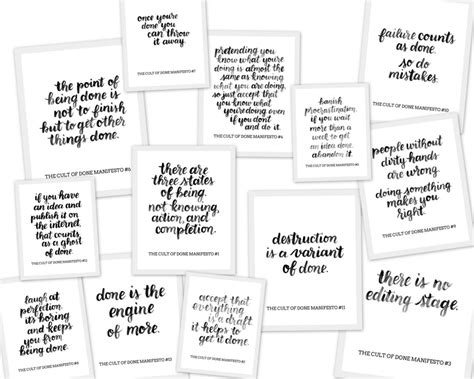 once you're
done you
can throw
it away.
THE CULT OF DONE MANIFESTO #7
pretending you
know what you're
doing is almost the
same as knowing
what you are doing,
so just accept that
you know what
you're doing even
if you don't
and do it.
THE CULT OF DONE MANIFESTO #4
failure counts
as done.
so do
mistakes.
THE CULT OF DONE MANIFESTO #10
the point of
being done is
not to finish
but to get other
things done.
THE CULT OF DONE MANIFESTO #6
banish
procrastination.
if you wait
more than a
week to get
an idea done,
abandon it.
THE CULT OF DONE MANIFESTO #5
people without
dirty hands
are wrong.
doing something
makes you
right.
THE CULT OF DONE MANIFESTO #9
there are
three states
of being.
not knowing,
action and
completion.
THE CULT OF DONE MANIFESTO #1
if you have
an idea and
publish it on
the internet,
that counts
as a ghost
of done.
THE CULT OF DONE MANIFESTO #12
destruction
is a variant
of done.
THE CULT OF DONE MANIFESTO #11
there is no
editing stage.
THE CULT OF DONE MANIFESTO #3
laugh at
perfection.
its boring
and keeps
you from
being done.
THE CULT OF DONE MANIFESTO #8
done is the
engine
of more.
THE CULT OF DONE MANIFESTO #13
accept that
everything
is a draft.
it helps to
get it done.
THE CULT OF DONE MANIFESTO #2